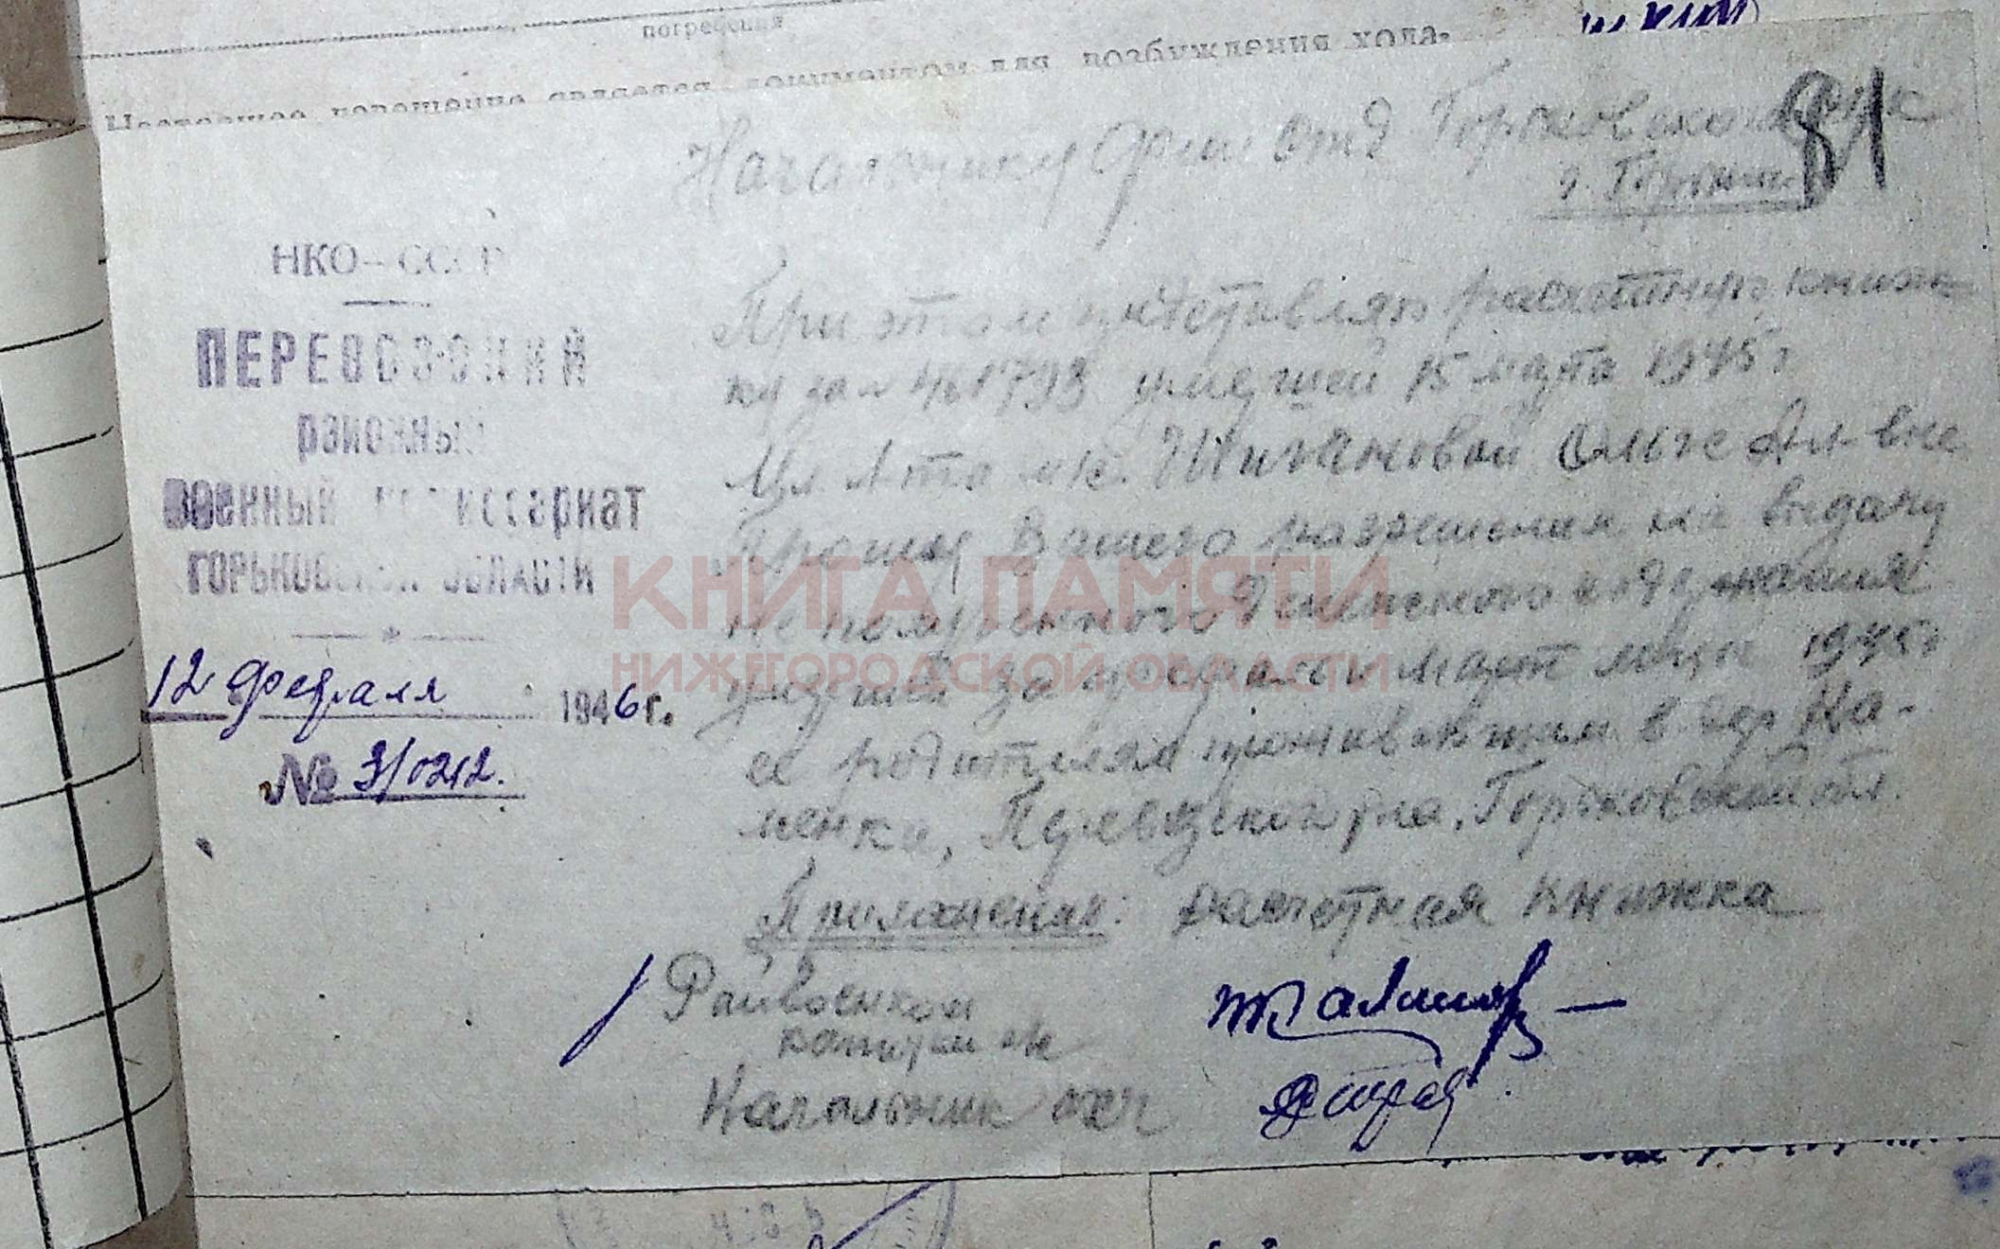 погребения
Настоящее извещение является документом для возбуждения хода-
81
Начальнику Фин отд Горьковского
г. Горький
НКО-СССР
ПЕРЕВОЗСКИЙ
районный
военный комиссариат
ГОРЬКОВСКОЙ ОБЛАСТИ
12 февраля 1946 г.
№ 3/0212.
При этом представляю расчетную книж
ку за № 461793 умершей 15 марта 1945 г
Мл. л-та м/с. Шигановой Ольге Ал-вне
Прошу Вашего разрешения на выдачу
не полученного Денежного содержания
умершей за февраль и март м-цы 1945 г
ее родителям проживающим в дер Ка-
менка, Перевозского р-на, Горьковской обл.
Приложение: расчетная книжка
Райвоенком
капитан
Начальник
КНИГА ПАМЯТИ
НИЖЕГОРОДСКОЙ ОБЛАСТИ